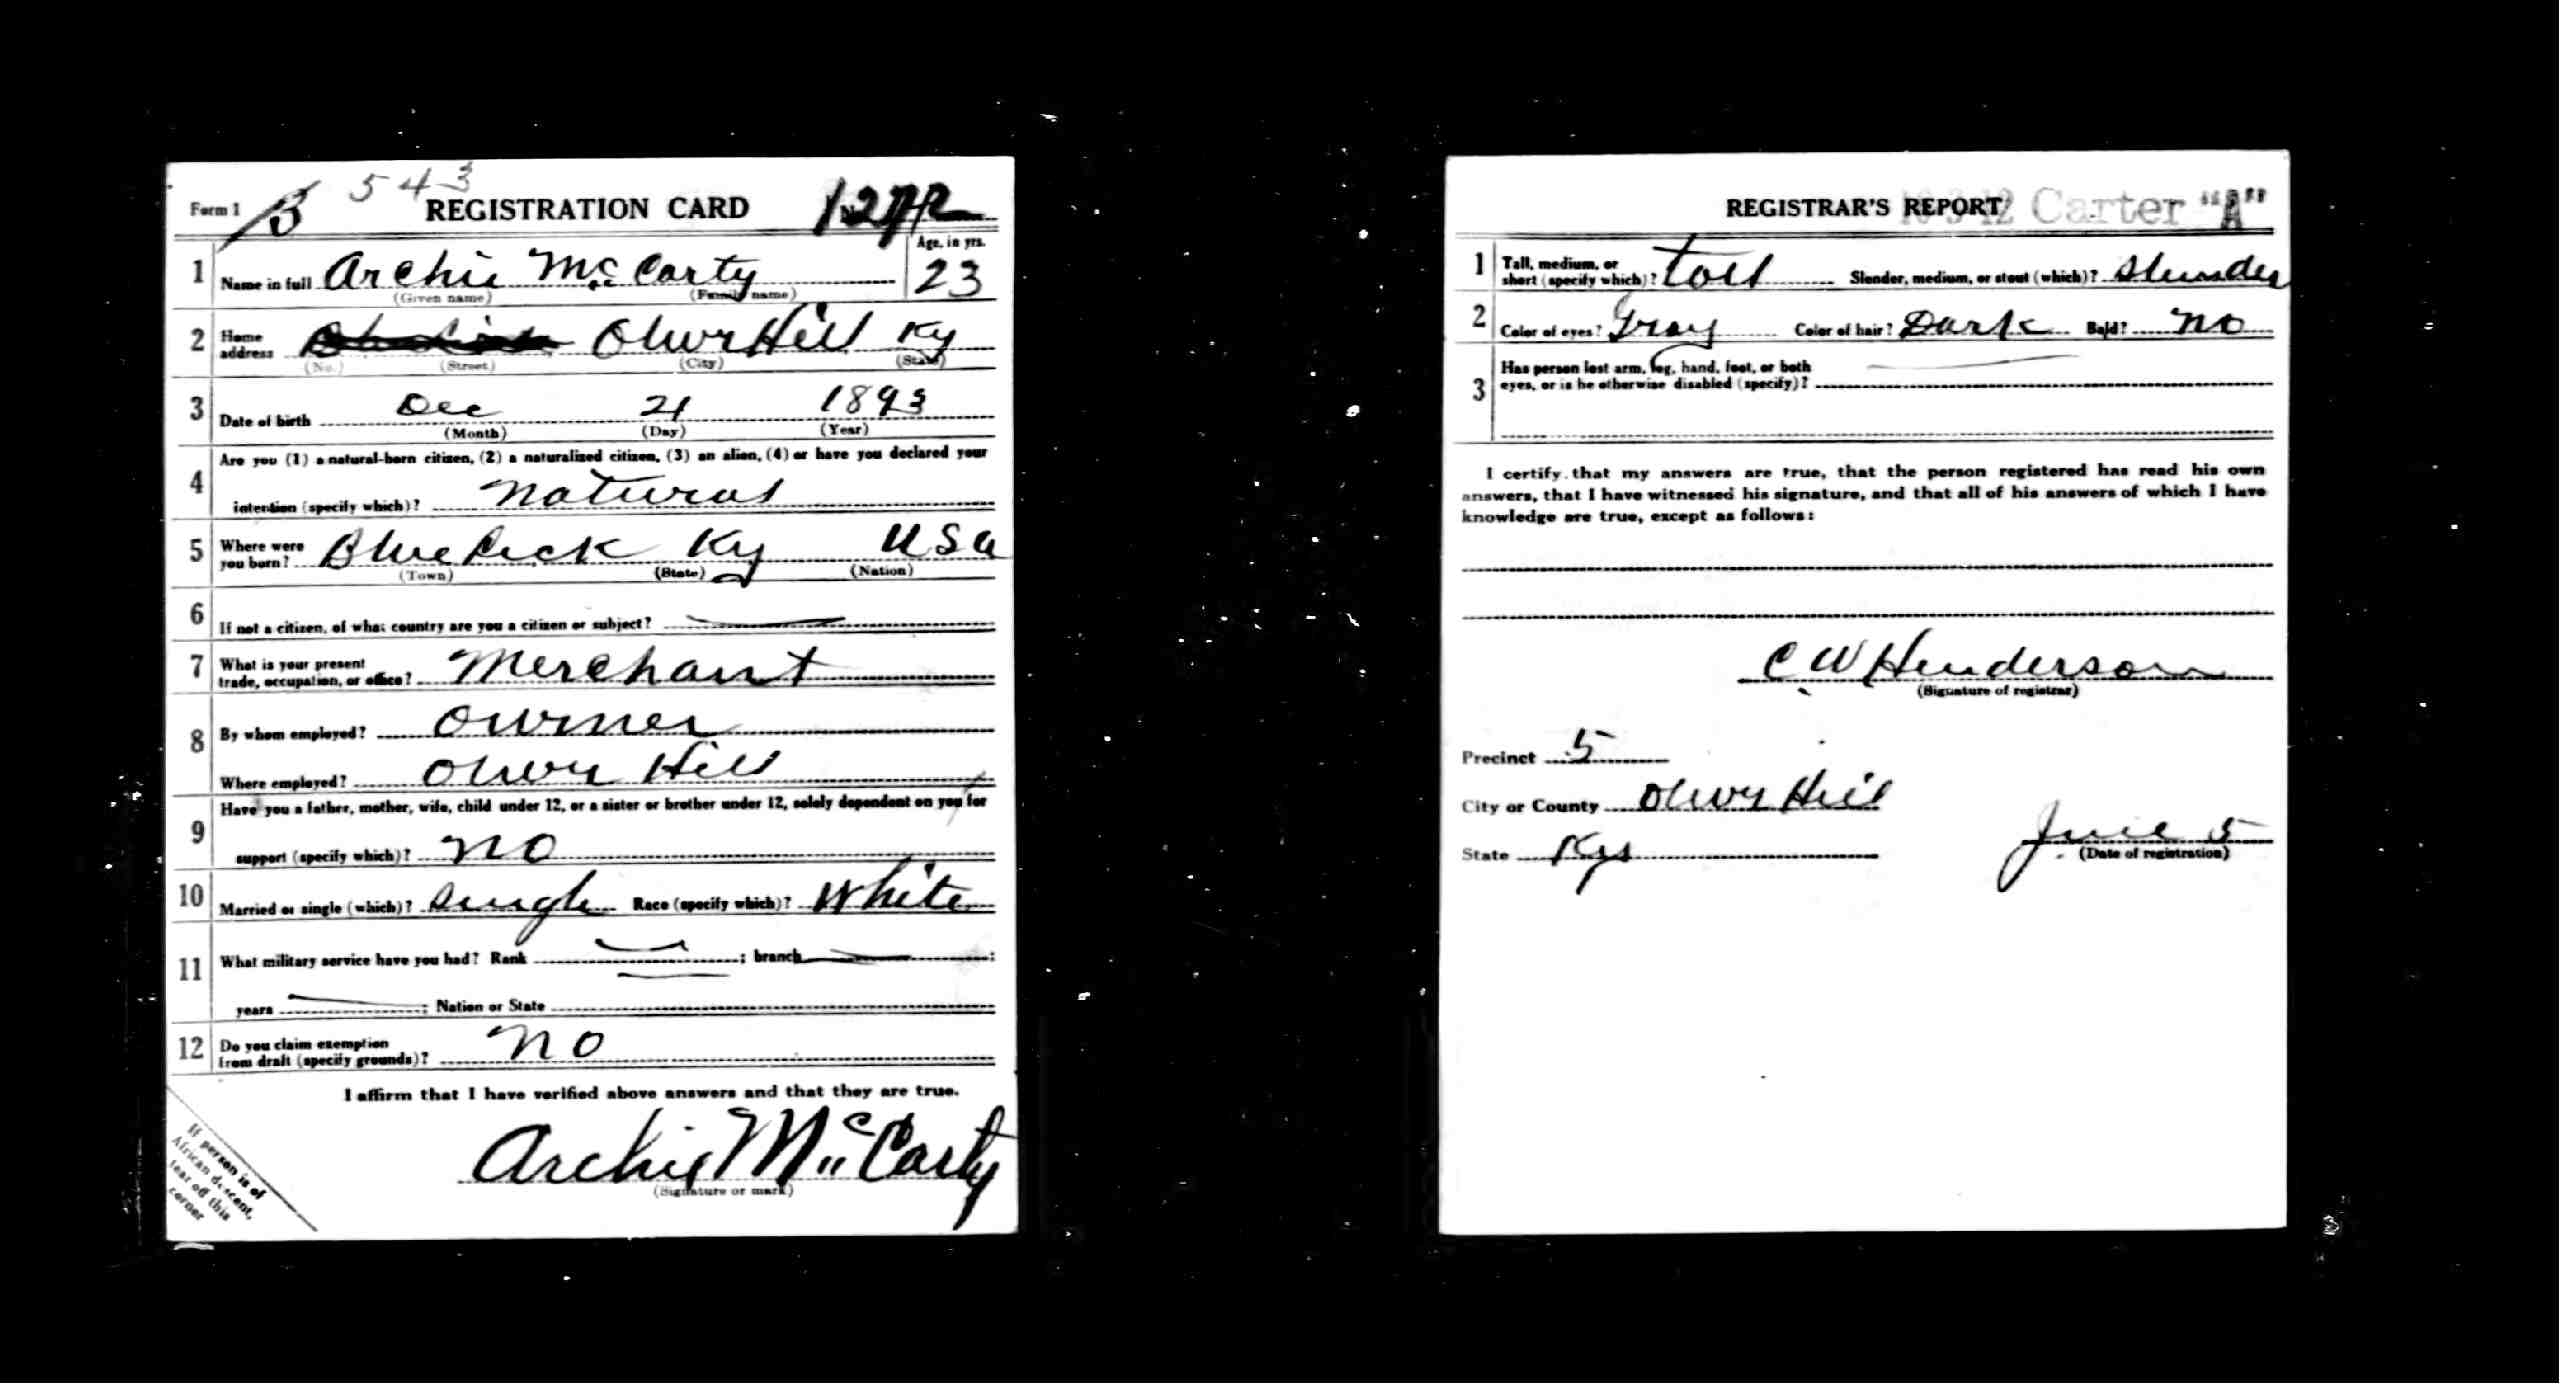 Form 1 B 543 REGISTRATION CARD
1 Name in full Archie McCarty Age, in yrs. 23
(Given name) (Family name)
2 Home address Oliver Hill Ky
(No.) (Street) (City) (State)
3 Date of birth Dec 21 1893
(Month) (Day) (Year)
4 Are you (1) a natural-born citizen, (2) a naturalized citizen, (3) an alien, (4) or have you declared your
intention (specify which)? Natural
5 Where were you born? Blue Lick Ky USA
(Town) (State) (Nation)
6 If not a citizen, of what country are you a citizen or subject?
7 What is your present trade, occupation, or office? Merchant
8 By whom employed? owner
Where employed? Oliver Hill
9 Have you a father, mother, wife, child under 12, or a sister or brother under 12, solely dependent on you for
support (specify which)? no
10 Married or single (which)? Single Race (specify which)? White
11 What military service have you had? Rank ; branch ;
years ; Nation or State
12 Do you claim exemption from draft (specify grounds)? no
I affirm that I have verified above answers and that they are true.
Archie McCarty
(Signature or mark)
If person is of
African descent,
tear off this
corner
REGISTRAR'S REPORT Carter "A"
1 Tall, medium, or short (specify which)? Tall Slender, medium, or stout (which)? Slender
2 Color of eyes? Gray Color of hair? Dark Bald? No
3 Has person lost arm, leg, hand, foot, or both
eyes, or is he otherwise disabled (specify)?
I certify that my answers are true, that the person registered has read his own
answers, that I have witnessed his signature, and that all of his answers of which I have
knowledge are true, except as follows:
C W Henderson
(Signature of registrar)
Precinct 5
City or County Oliver Hill
State Ky June 5
(Date of registration)